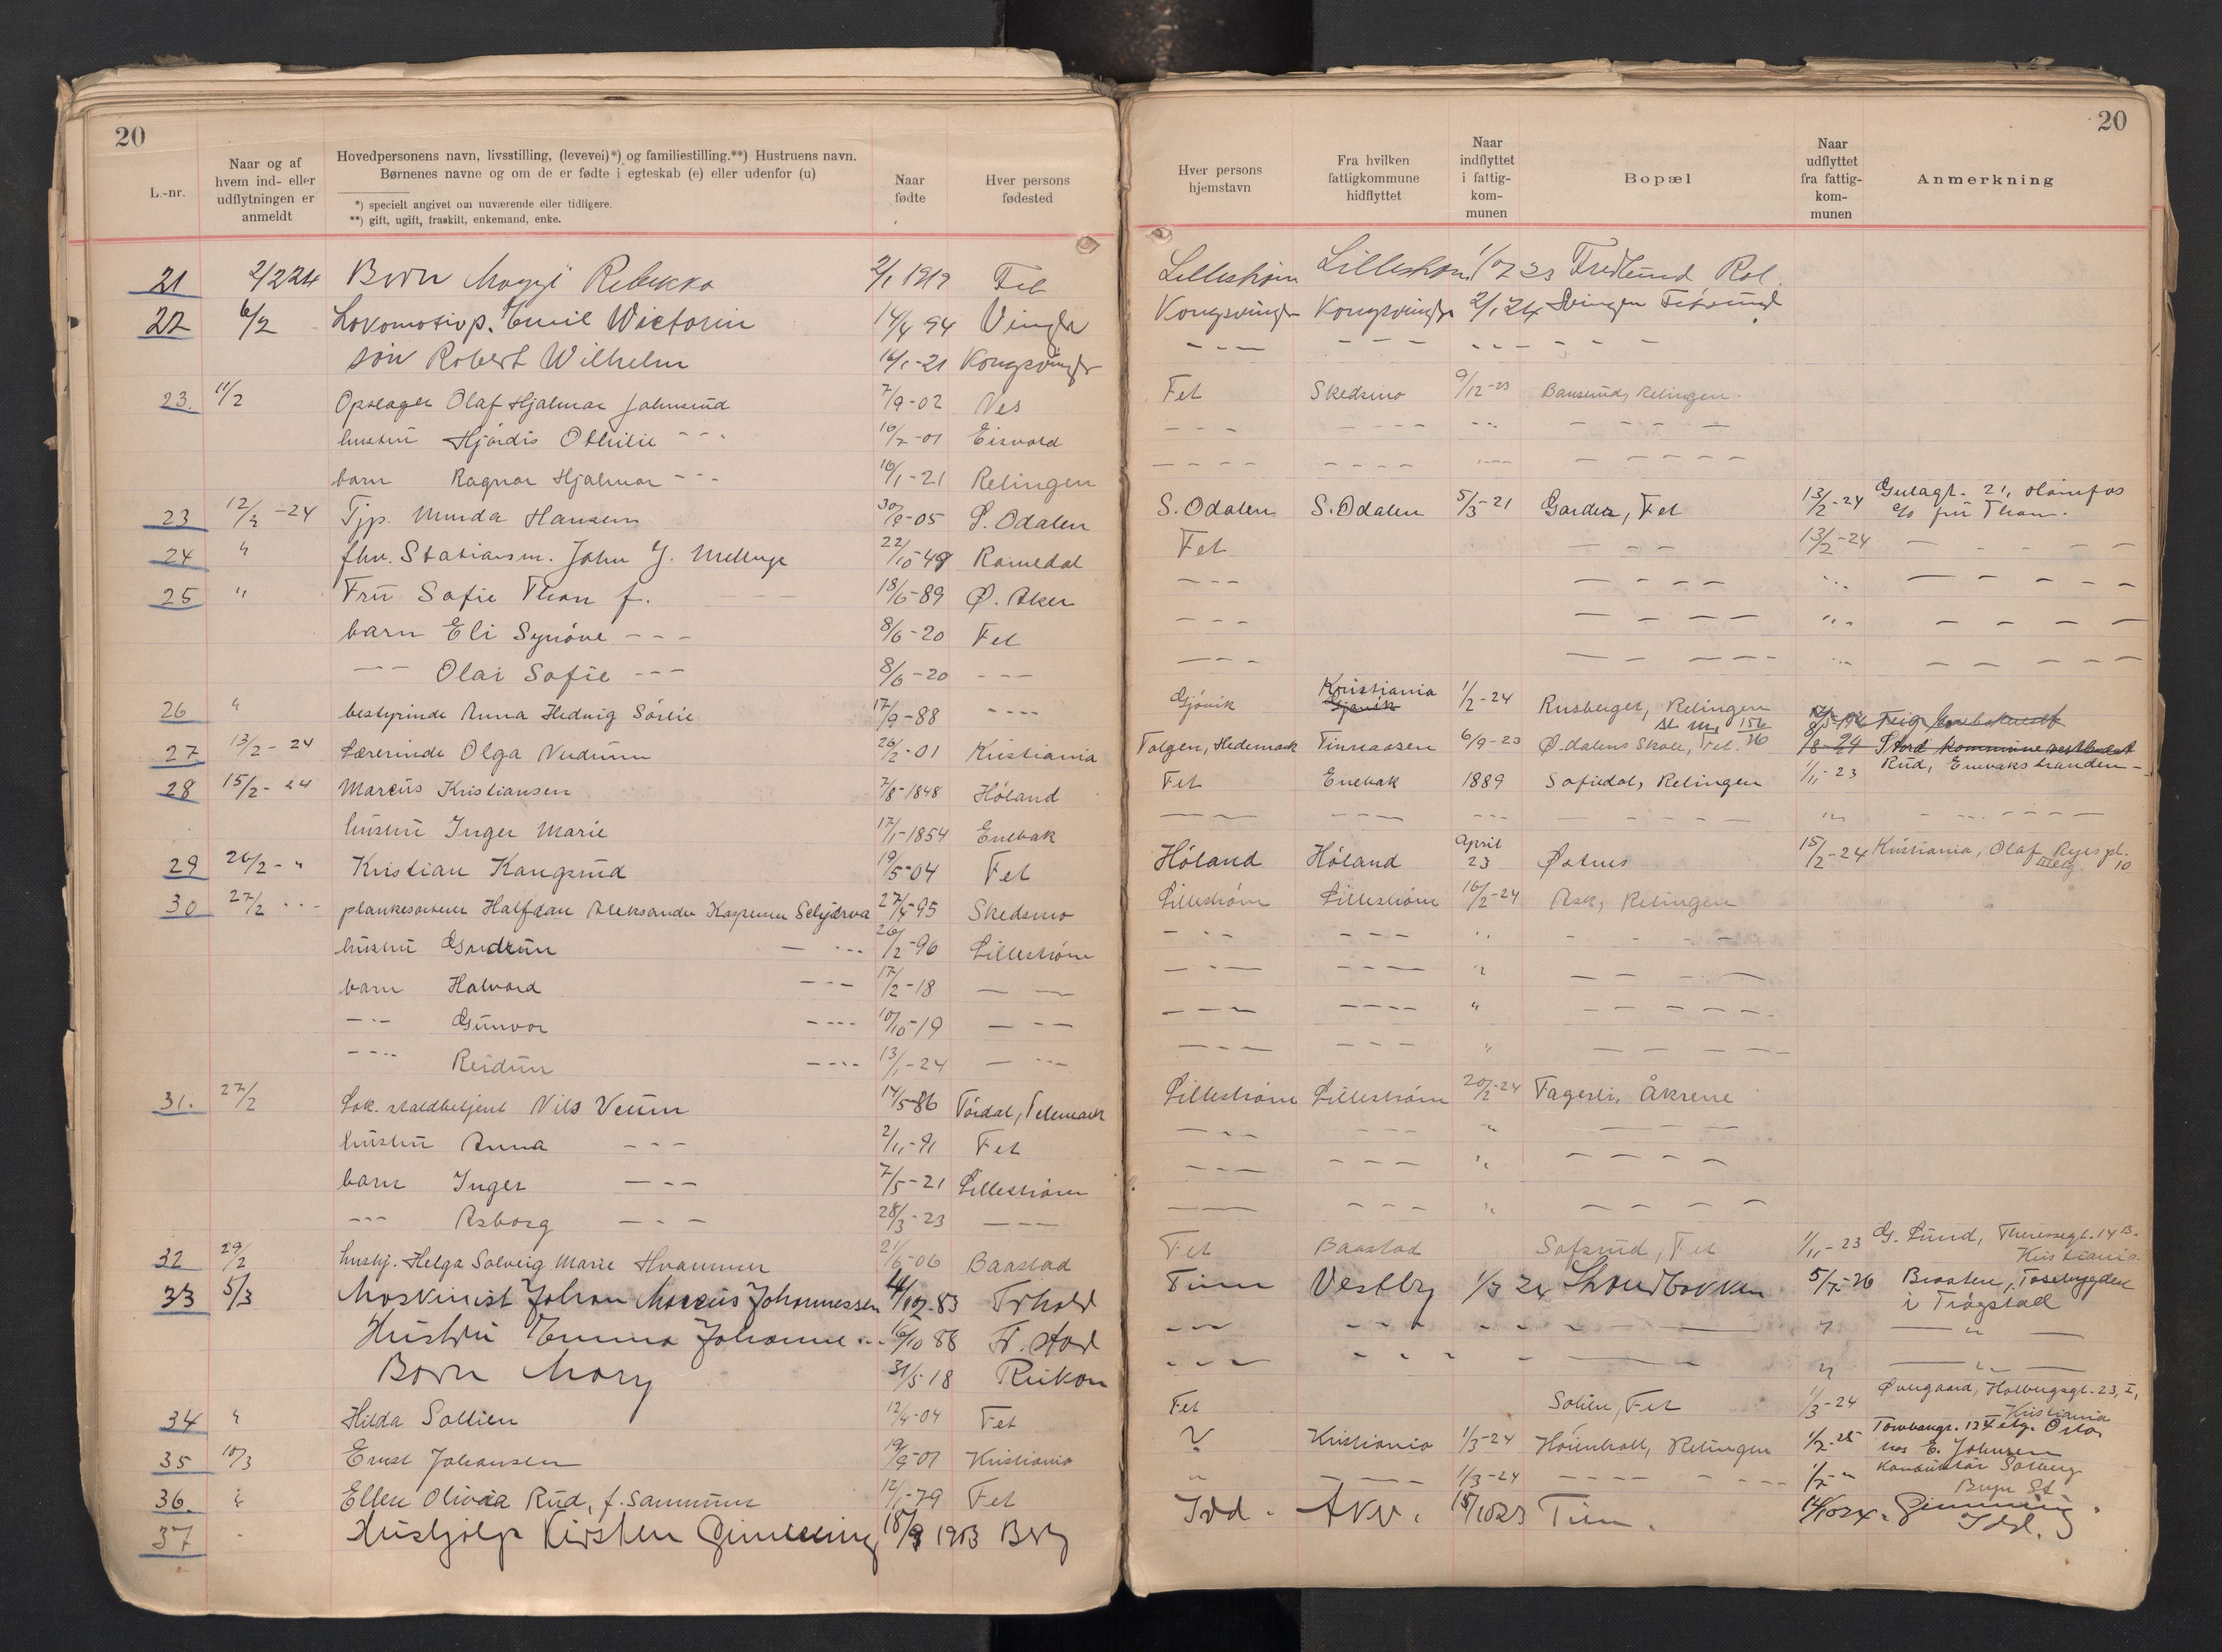 20
L.-nr.
Naar og af hvem ind- eller udflytningen er anmeldt
Hovedpersonens navn, livsstilling, (levevei)*) og familiestilling.**) Hustruens navn.
Børnenes navne og om de er fødte i egteskab (e) eller udenfor (u)
*) specielt angivet om nuværende eller tidligere.
**) gift, ugift, fraskilt, enkemand, enke.
Naar fødte
Hver persons fødested
20
Hver persons hjemstavn
Fra hvilken fattigkommune hidflyttet
Naar indflyttet i fattigkommunen
Bopæl
Naar udflyttet fra fattigkommunen
Anmerkning
21 2/2 24 Barn Rebekka 2/1 1919 Fet Lillestrøm Lillestrøm 1/7 23 Fredlund Ræl.
22 6/2 Lokomotivp. Emil Wictorin 14/4 94 Vinger Kongsvinger Kongsvinger 2/1 24 Svingen Fetsund
søn Robert Wilhelm 16/1-21 Kongsvinger - - -
23. 11/2 Opslager Olaf Hjalmar Johnsrud 7/9-02 Nes Fet Skedsmo 9/12-23 Relingen
hustru Hjørdis Othilie - - - 16/7-01 Eisvold - - -
barn Ragnar Hjalmar - - - 16/1-21 Relingen - - -
23 12/2-24 Tjp. Minda Hansen 30/9-05 S. Odalen S. Odalen S. Odalen 5/3-21 Garder, Fet 13/2-24 21, Hønefos
c/o fru Thon.
24 " fhv. Stationsm. John J. Mellnge 22/10-49 Romedal Fet - - - 13/2-24 - - -
25 " Fru Sofie Thon f. - - - 18/6-89 Ø. Aker - - -
barn Eli Synøve - - - 8/6-20 Fet - - -
- - Olai Sofie - - - 8/6-20 - - -
26 " bestyrinde Anna Hedvig Sørlie 17/9-88 - - - Gjøvik Kristiania Gjøvik 1/2-24 Rusberget, Relingen
27 13/2-24 Lærerinde Olga Nedrum 26/2-01 Kristiania Tolgen, Hedemark Finnaasen 6/9-23 Ø.dalens Skole, Fet. 8-24 Stord kommune
28 15/2-24 Marcus Kristiansen 7/8-1848 Høland Fet Enebak 1889 Sofiedal, Relingen 1/11-23 Rud, Enebaks stranden
hustru Inger Marie 17/1-1854 Enebak - - -
29 26/2-" Kristian Kangsrud 19/5-04 Fet Høland Høland April 23 15/2-24 Kristiania, Olaf Ryes pl. 10
30 27/2 - - - Halfdan Aleksander Kaspersen 27/4-95 Skedsmo Lillestrøm Lillestrøm 16/2-24 Ask, Relingen
hustru Gudrun - - - 26/2-96 Lillestrøm - - -
barn Halvard - - - 17/2-18 - - -
- - - Gunvor - - - 10/10-19 - - -
- - - Reidun - - - 13/1-24 - - -
31. 27/2 Lok. staldbetjent Nils Veum 14/5-86 Tørdal, Telemark Lillestrøm Lillestrøm 20/2-24 Fagerli, Åkrene
hustru Anna - - - 2/11-91 Fet - - -
barn Inger - - - 7/5-21 Lillestrøm - - -
- - - Asborg - - - 28/3-23 - - -
32 29/2 hushj. Helga Solveig Marie Hvammen 21/6-06 Baastad Fet Baastad Fet 1/11-23 G. Lund, Theresesgt. 14 B.
Kristiania.
33 5/3 Maskinist Johan Marcus Johannessen 83 Tune Vestby 1/3 24 5/7-26 Braaten, i Trøgstad
Hustru Emma Johanne - - - 16/10 88 Fr. stad - - -
Barn Mary 31/5-18 Rukan - - -
34 " Hilda Sollien 12/4-04 Fet Fet Solien, Fet 1/3-24 Øvergaard, Holbergsgt. 23, I,
Kristiania
35 10/3 Ernst Johansen 19/9-07 Kristiania ? Kristiania 1/3-24 Relingen 1/7-25 etg. Oslo,
hos E. Johnsen
36. " Ellen Olivia Rud, f. Sannum 12/1-79 Fet " - - - 1/3-24 - - - 1/7-" Konduktør Solberg
Bryn St
37 - Hushjelp Kirsten Gimming 18/9 1903 Berg Idd. Aker. 15/10 23 14/10 24. Gimming
Idd.